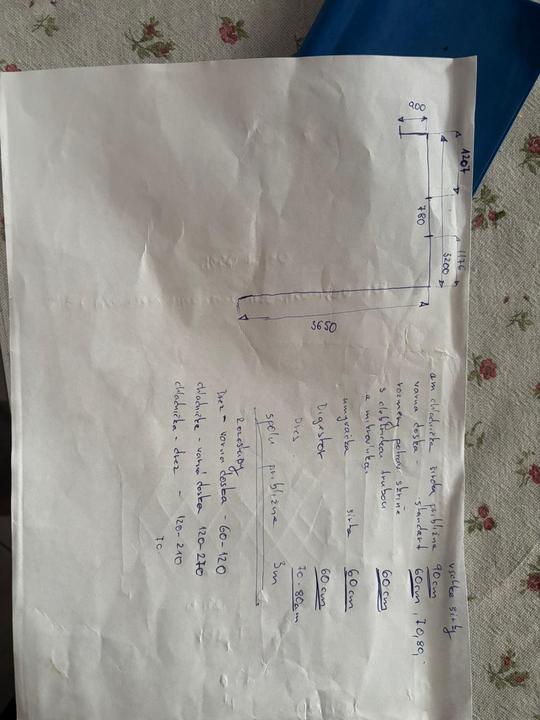 900
1207
780
1176
3200
3650
všetko šírky
am. chladnička šírka približne 90 cm
varná doska - štandart 60 cm, 70, 80,
rozmery potrav. skrine
s elektrickou trubou
a mikrovlnkou 60 cm
umývačka šírka 60 cm
Digestor 60 cm
Drez 70-80 cm
spolu približne 3m
Rozostupy
Drez - varná doska - 60-120
chladnička - varná doska 120-270
chladnička - drez - 120-210
70